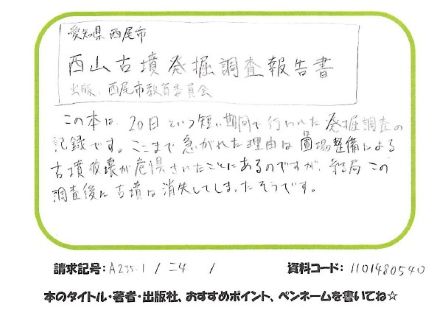 愛知県 西尾市
西山古墳発掘調査報告書
出版、西尾市教育委員会
この本は、20日という短い期間で行われた発掘調査の
記録です。ここまで急がれた理由は圃場整備による
古墳破壊が危惧されたことにあるのですが、結局この
調査後に古墳は消失してしまったそうです。
請求記号: A235.1 / ニ4 /
資料コード: 1101480540
本のタイトル・著者・出版社、おすすめポイント、ペンネームを書いてね☆